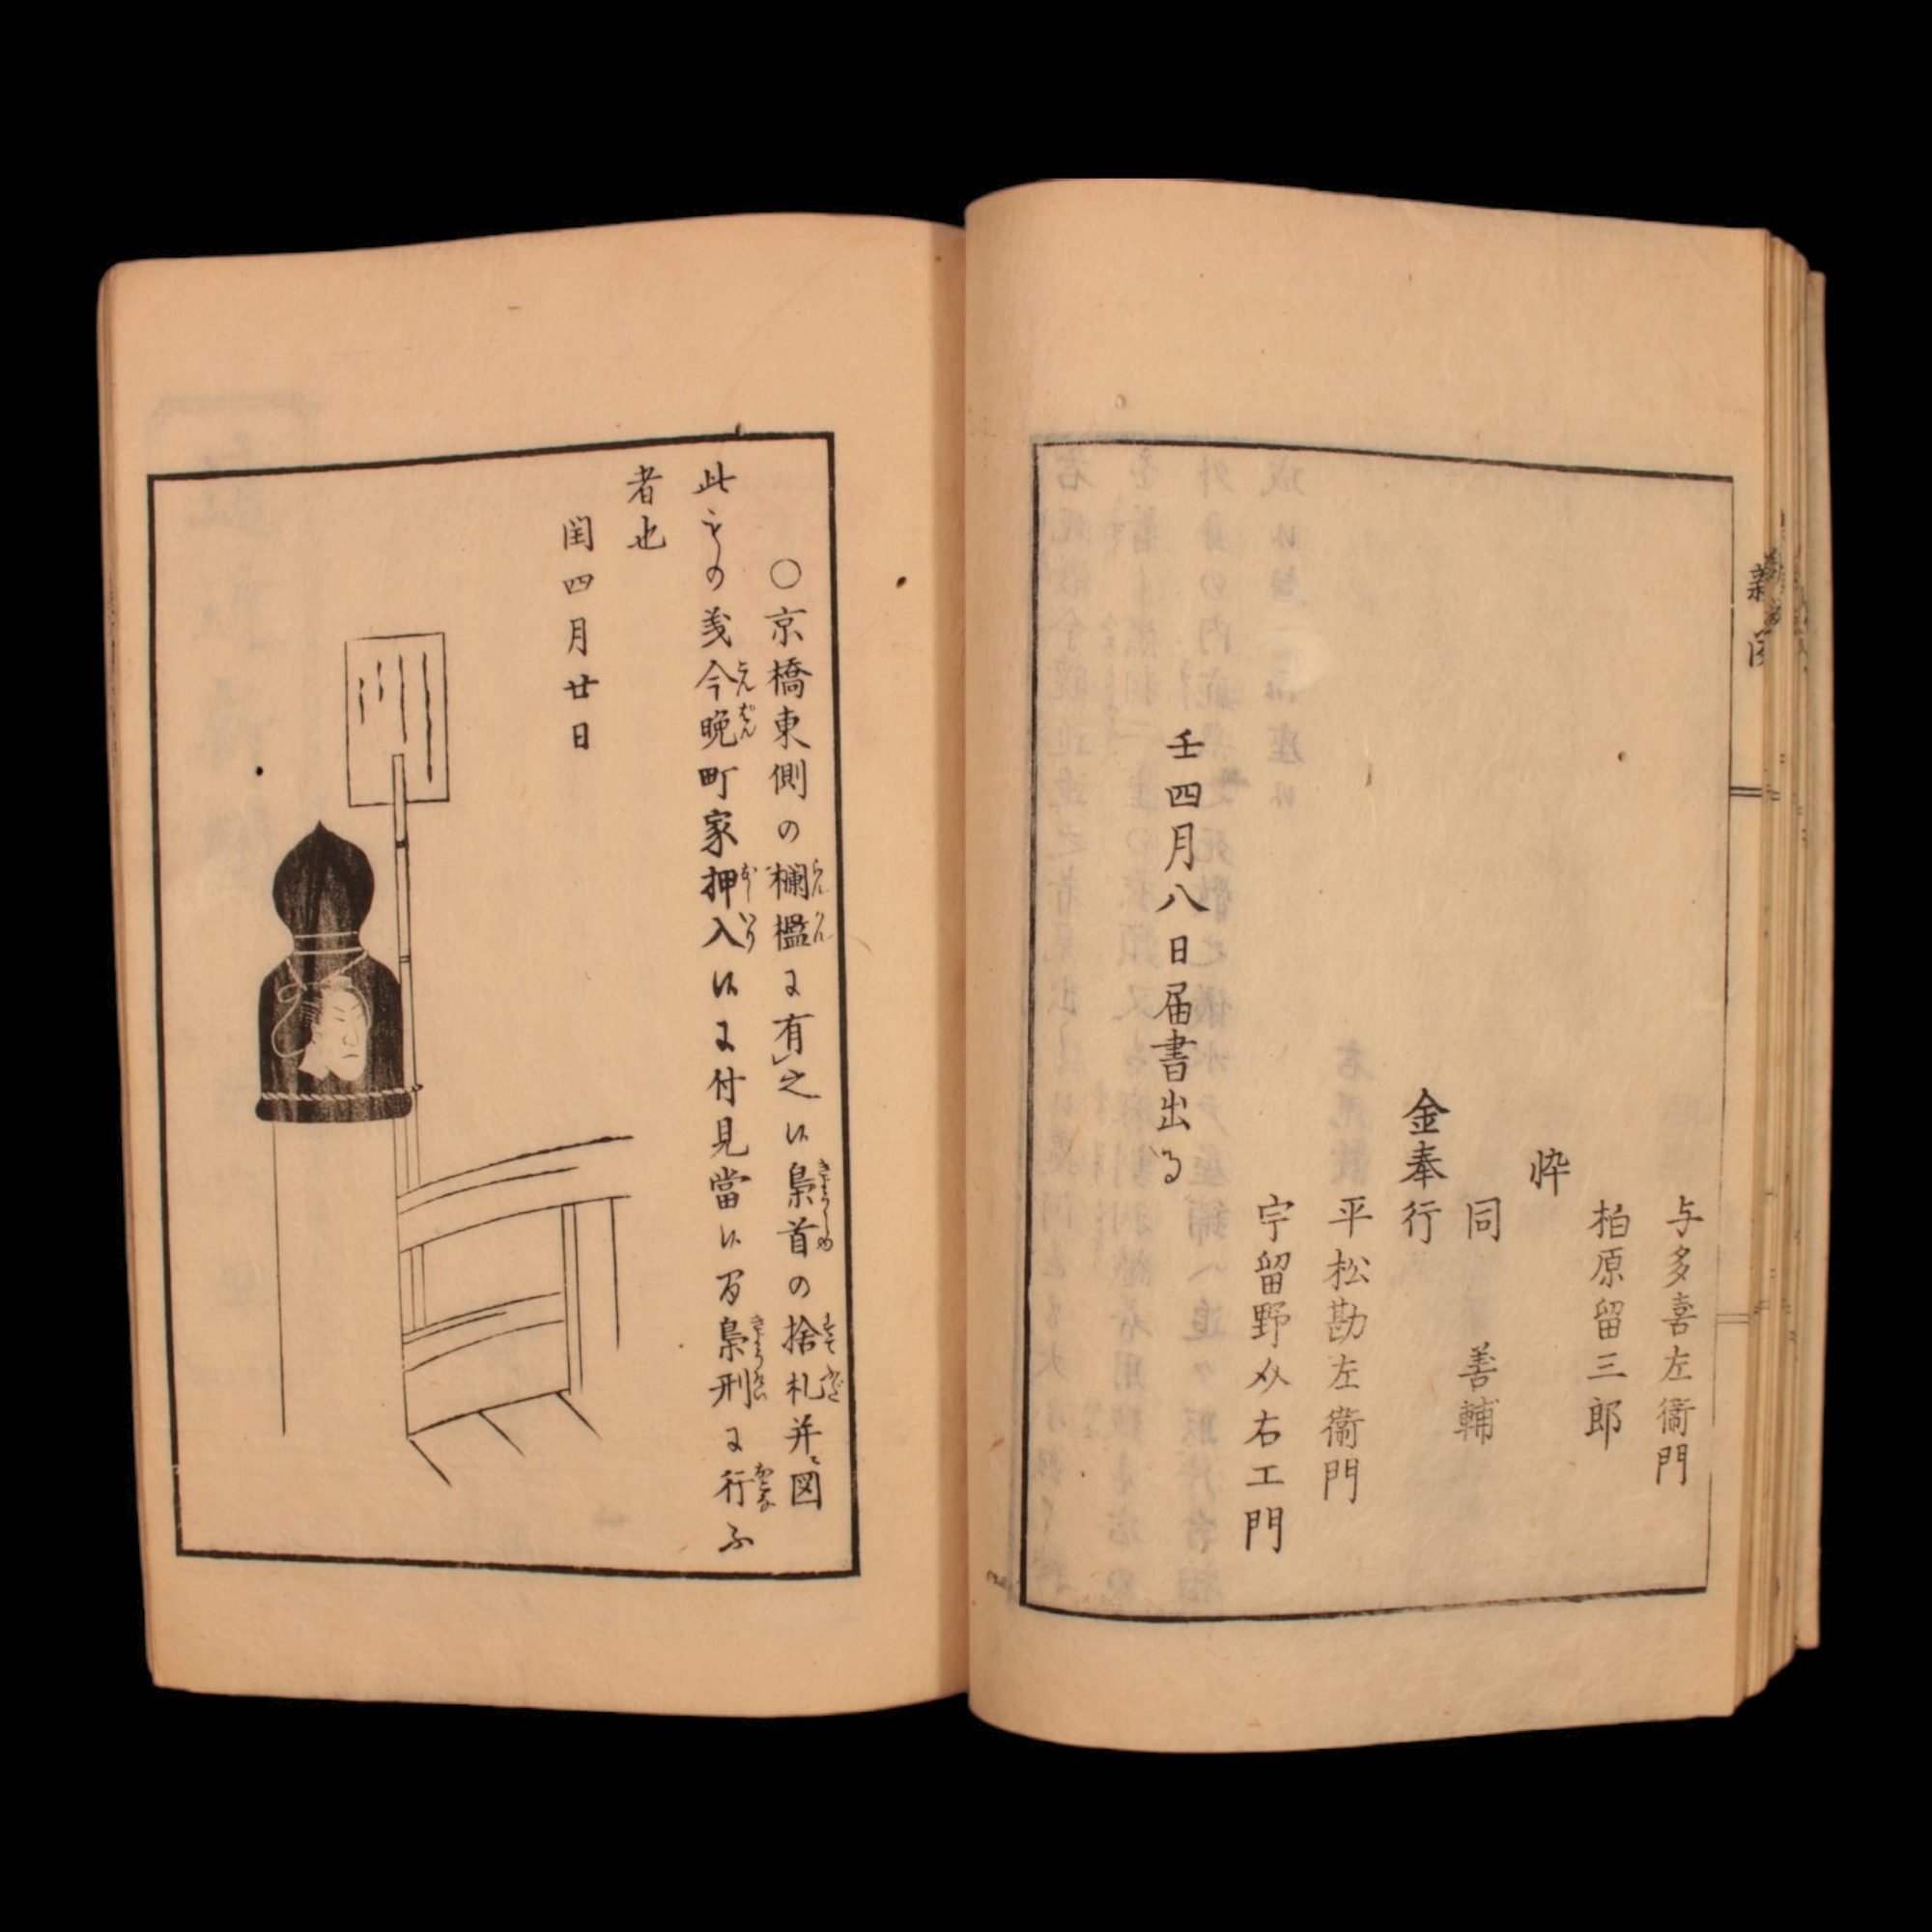 与多喜左衞門
柏原留三郎
忰
同 善輔
金奉行
平松勘左衞門
宇留野从右エ門
壬四月八日届書出る
○京橋東側の欄檻に有之候梟首の捨札并図
此ものの義今晩町家押入候に付見當候而梟刑に行ふ
者也
閏四月廿日